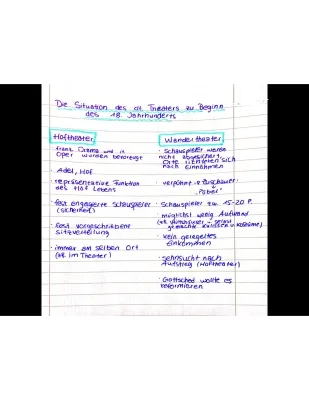 Die Situation des dt. Theaters zu Beginn
des 18. Jahrhunderts
Hoftheater
· franz. Drama und it.
Oper wurden bevorzugt
· Adel, Hof
· repräsentative Funktion
des Hof Lebens
· fest engagierte Schauspieler
(sicherheit)
· fest vorgeschriebene
sitzverteilung
· immer am selben Ort
(zB. im Theater)
Wandertheater
· Schauspieler werden
nicht abgesichert,
Orte richteten sich
nach Einnahmen
· verpönt
"Pöbel"
· Schauspieler ca. 15-20 P.
· möglichst wenig Aufwand
· kein geregeltes
Einkommen
· sehnsucht nach
Aufstieg (Hoftheater)
· Gottsched wollte es
reformieren